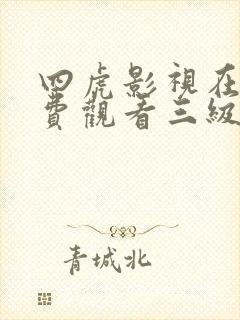 四虎影視在
費觀看三級
青城北